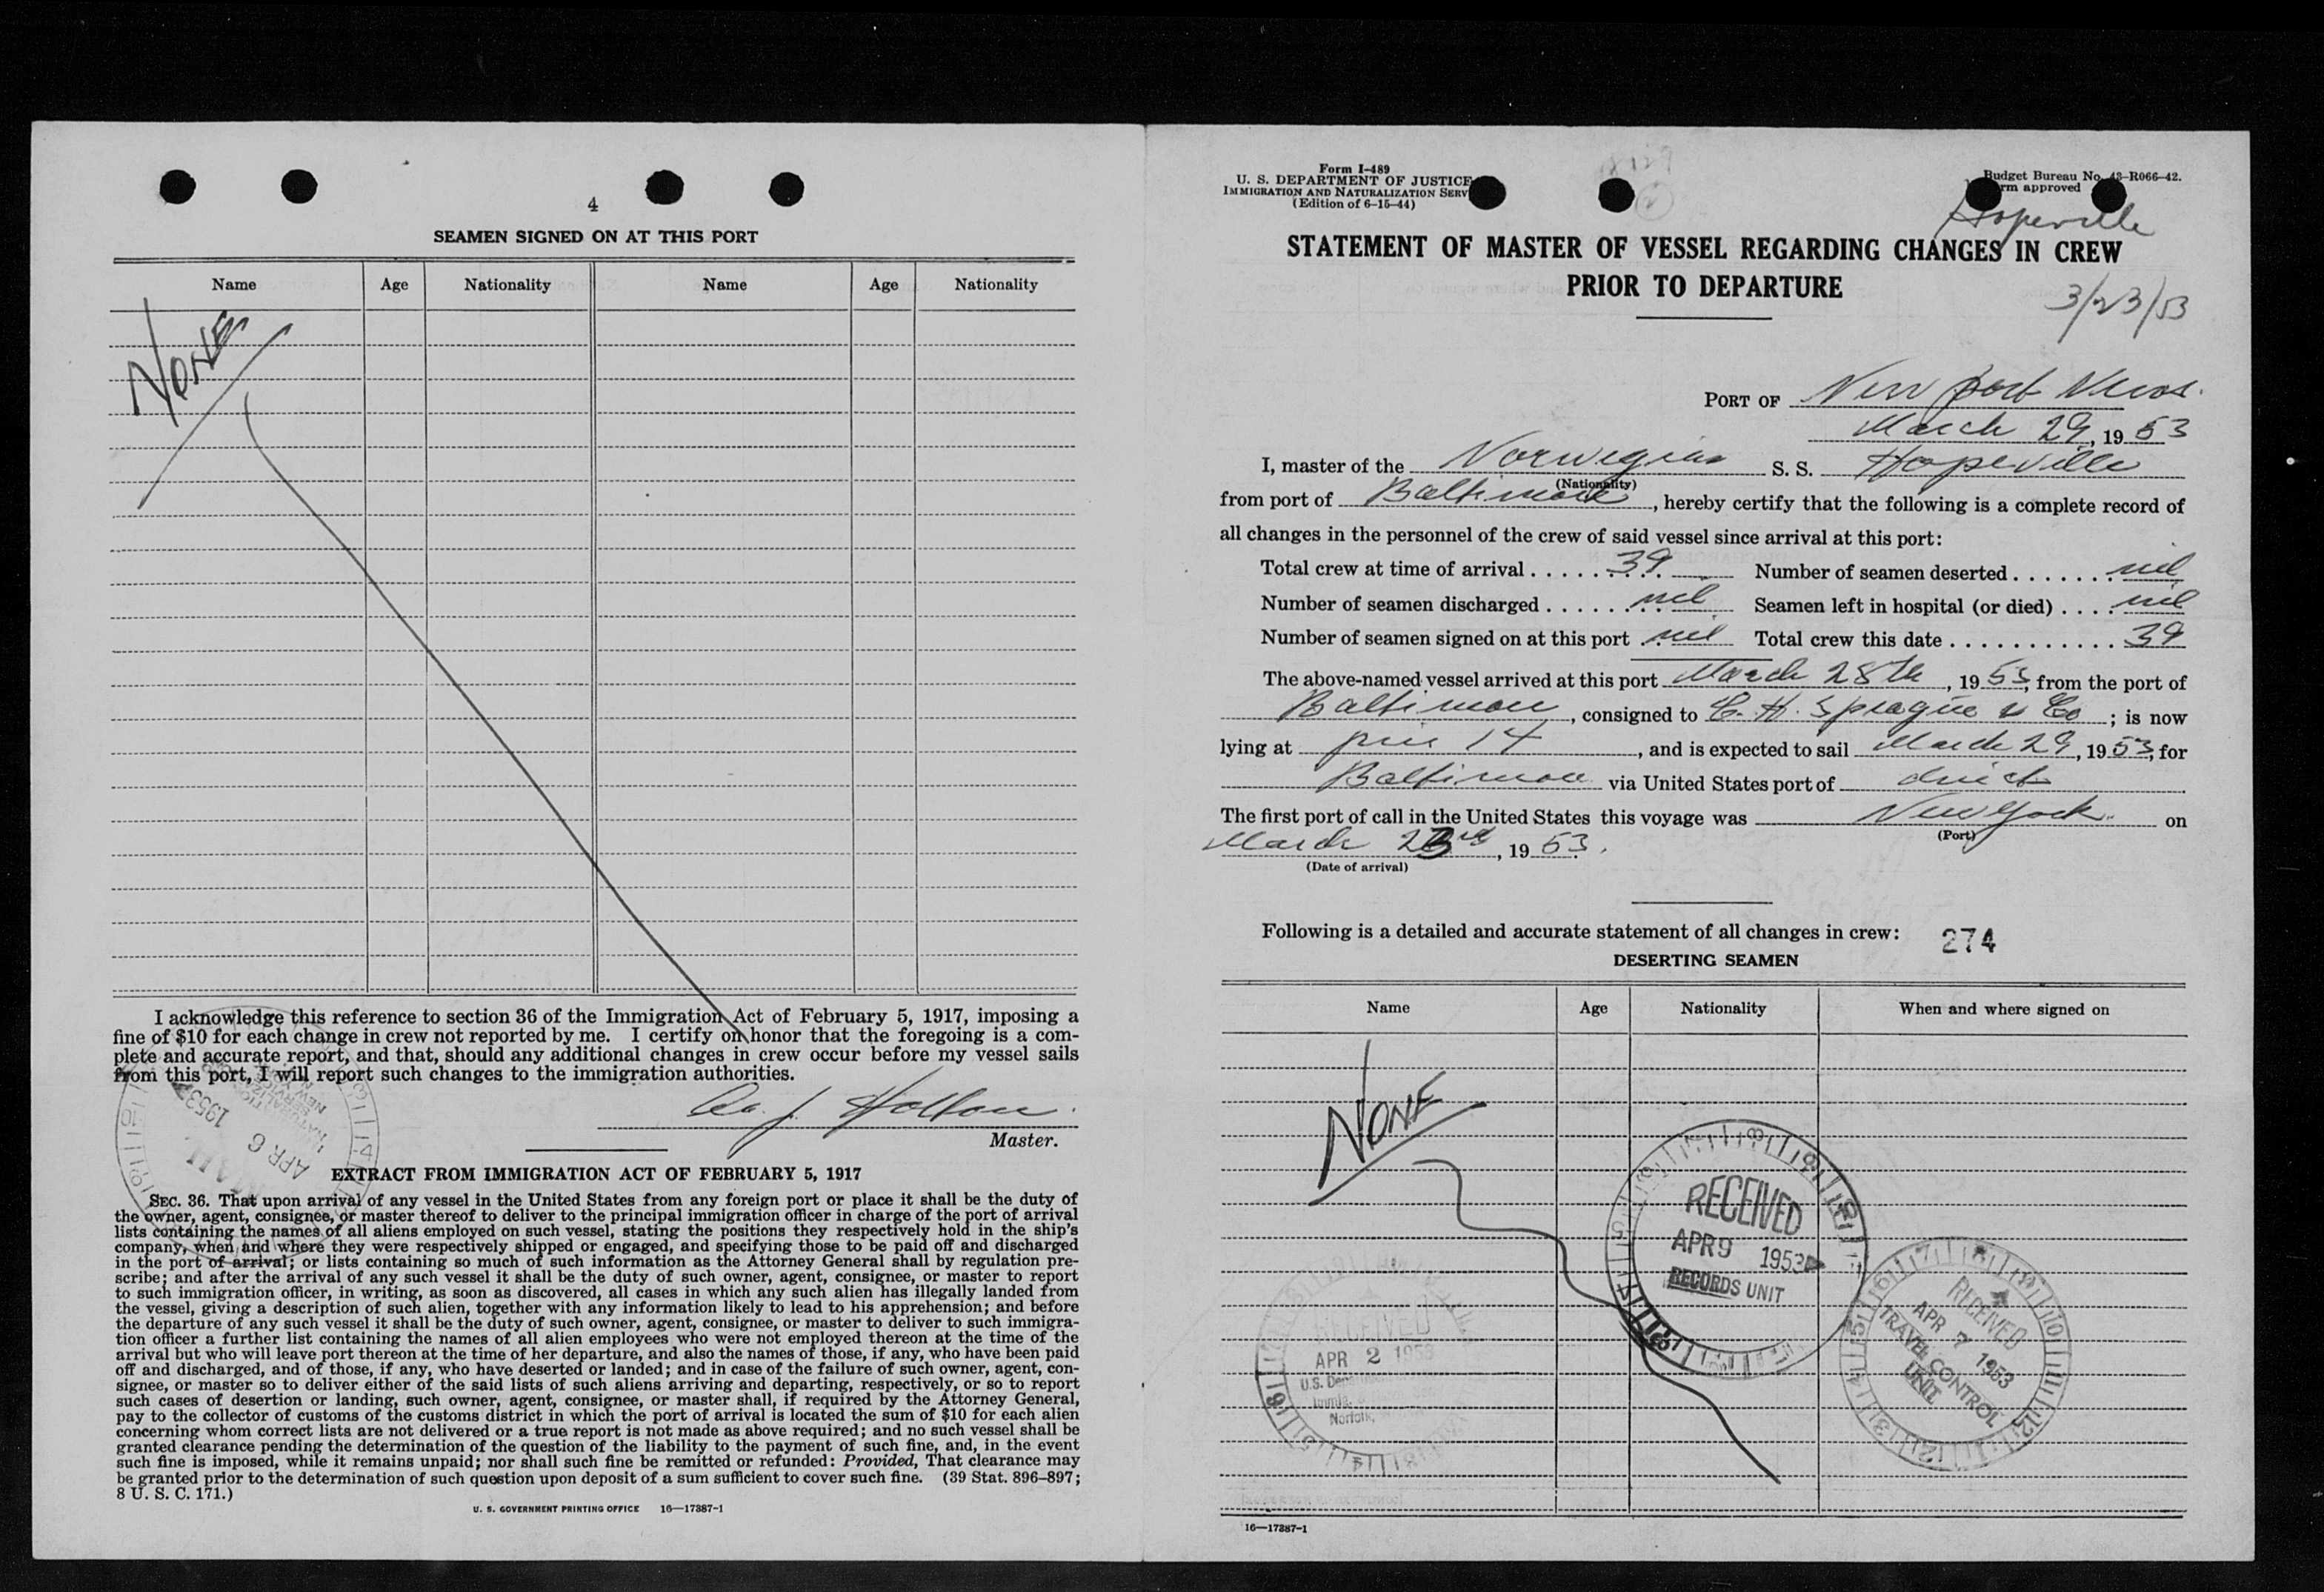 4
SEAMEN SIGNED ON AT THIS PORT
Name Age Nationality Name Age Nationality
NONE
I acknowledge this reference to section 36 of the Immigration Act of February 5, 1917, imposing a
fine of $10 for each change in crew not reported by me. I certify on honor that the foregoing is a com-
plete and accurate report, and that, should any additional changes in crew occur before my vessel sails
from this port, I will report such changes to the immigration authorities.
Master.
APR 6 1953
EXTRACT FROM IMMIGRATION ACT OF FEBRUARY 5, 1917
SEC. 36. That upon arrival of any vessel in the United States from any foreign port or place it shall be the duty of
the owner, agent, consignee, or master thereof to deliver to the principal immigration officer in charge of the port of arrival
lists containing the names of all aliens employed on such vessel, stating the positions they respectively hold in the ship's
company, when and where they were respectively shipped or engaged, and specifying those to be paid off and discharged
in the port of arrival; or lists containing so much of such information as the Attorney General shall by regulation pre-
scribe; and after the arrival of any such vessel it shall be the duty of such owner, agent, consignee, or master to report
to such immigration officer, in writing, as soon as discovered, all cases in which any such alien has illegally landed from
the vessel, giving a description of such alien, together with any information likely to lead to his apprehension; and before
the departure of any such vessel it shall be the duty of such owner, agent, consignee, or master to deliver to such immigra-
tion officer a further list containing the names of all alien employees who were not employed thereon at the time of the
arrival but who will leave port thereon at the time of her departure, and also the names of those, if any, who have been paid
off and discharged, and of those, if any, who have deserted or landed; and in case of the failure of such owner, agent, con-
signee, or master so to deliver either of the said lists of such aliens arriving and departing, respectively, or so to report
such cases of desertion or landing, such owner, agent, consignee, or master shall, if required by the Attorney General,
pay to the collector of customs of the customs district in which the port of arrival is located the sum of $10 for each alien
concerning whom correct lists are not delivered or a true report is not made as above required; and no such vessel shall be
granted clearance pending the determination of the question of the liability to the payment of such fine, and, in the event
such fine is imposed, while it remains unpaid; nor shall such fine be remitted or refunded: Provided, That clearance may
be granted prior to the determination of such question upon deposit of a sum sufficient to cover such fine. (39 Stat. 896–897;
8 U. S. C. 171.)
U. S. GOVERNMENT PRINTING OFFICE 16—17387-1
Form I-489
U. S. DEPARTMENT OF JUSTICE
IMMIGRATION AND NATURALIZATION SERV
(Edition of 6-15-44)
Budget Bureau No. 43-R066-42.
rm approved
Hopeville
STATEMENT OF MASTER OF VESSEL REGARDING CHANGES IN CREW
PRIOR TO DEPARTURE
3/23/53
PORT OF New port News.
March 29, 1953
I, master of the Norwegian S. S. Hopeville
(Nationality)
from port of Baltimore, hereby certify that the following is a complete record of
all changes in the personnel of the crew of said vessel since arrival at this port:
Total crew at time of arrival ....... 39 Number of seamen deserted ....... nil
Number of seamen discharged ....... nil Seamen left in hospital (or died) .... nil
Number of seamen signed on at this port .. nil Total crew this date ........... 39
The above-named vessel arrived at this port March 28th, 1953, from the port of
Baltimore, consigned to C. H. Sprague & Co; is now
lying at pier 14, and is expected to sail March 29, 1953, for
Baltimore via United States port of direct
The first port of call in the United States this voyage was New York. on
(Port)
March 23rd, 1953.
(Date of arrival)
Following is a detailed and accurate statement of all changes in crew: 274
DESERTING SEAMEN
Name Age Nationality When and where signed on
NONE
RECEIVED
APR 9 1953
RECORDS UNIT
RECEIVED
APR 7 1953
TRAVEL CONTROL
UNIT
RECEIVED
APR 2 1953
Norfolk,
16—17387-1